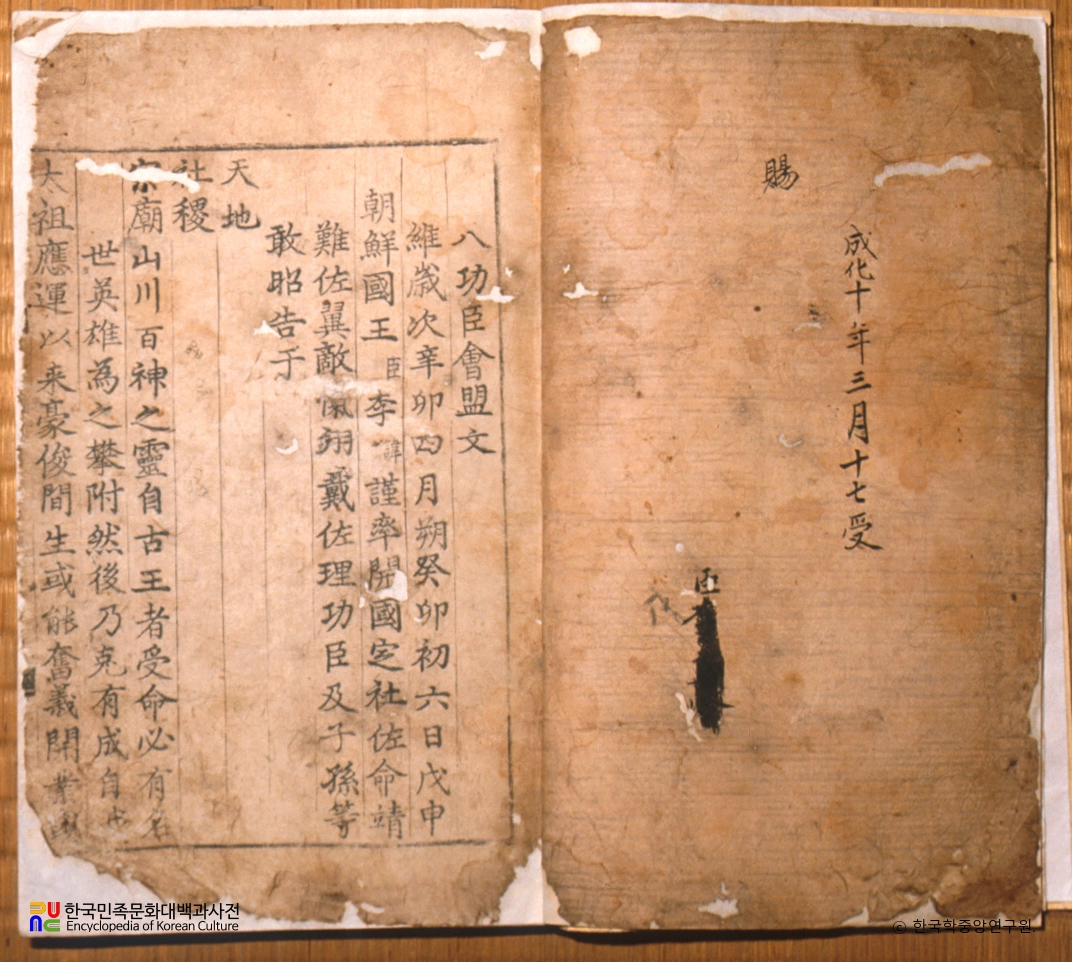 成化十年三月十七受
賜
臣
八功臣會盟文
維歲次辛卯四月朔癸卯初六日戊申
朝鮮國王臣李諱謹率開國定社佐命靖
難佐翼敵愾翊戴佐理功臣及子孫等
敢昭告于
天地
社稷
宗廟山川百神之靈自古王者受命必有名
世英雄為之攀附然後乃克有成自
太祖應運以来豪俊間生或能奮義開業
한국민족문화대백과사전
Encyclopedia of Korean Culture
© 한국학중앙연구원